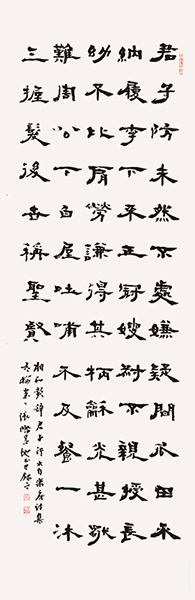 君子防未然不處嫌疑間瓜田不
納履李下不正冠嫂叔不親授長
幼不比肩勞謙得其柄龢光甚獨
難周公下白屋吐哺不及餐一沐
三握髮後世稱聖賢
相和歌辭君子行出自樂府詩集